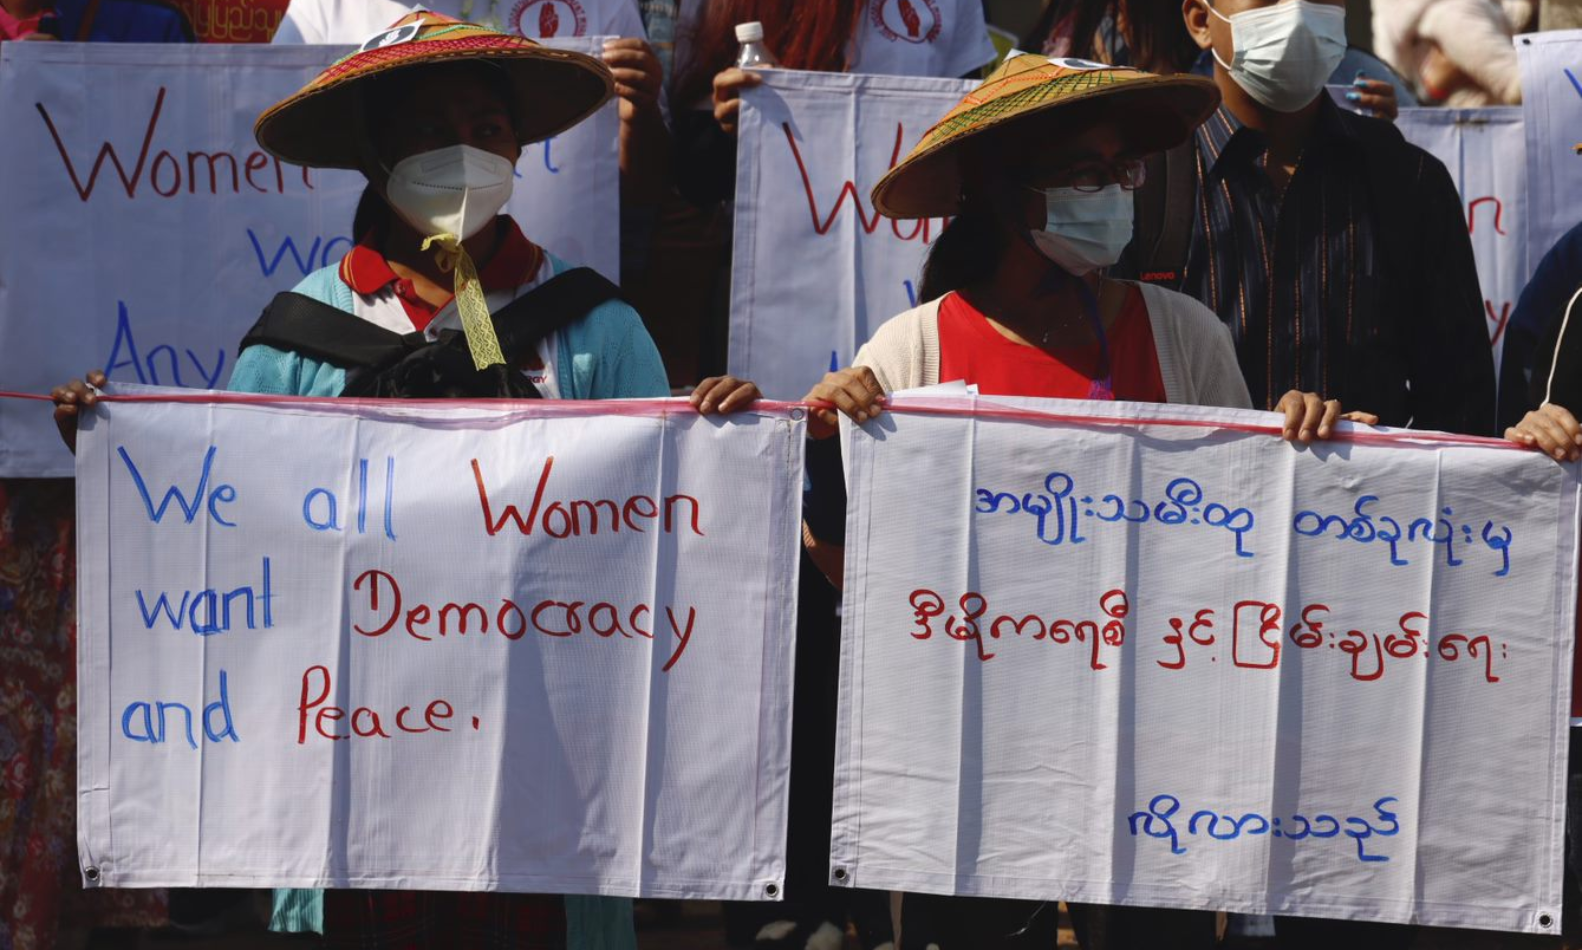 Women
wo
Any
We all Women
want Democracy
and Peace.
အမျိုးသမီးထု တစ်ခုလုံးမှ
ဒီမိုကရေစီ နှင့် ငြိမ်းချမ်းရေး
လိုလားသည်
Lenovo